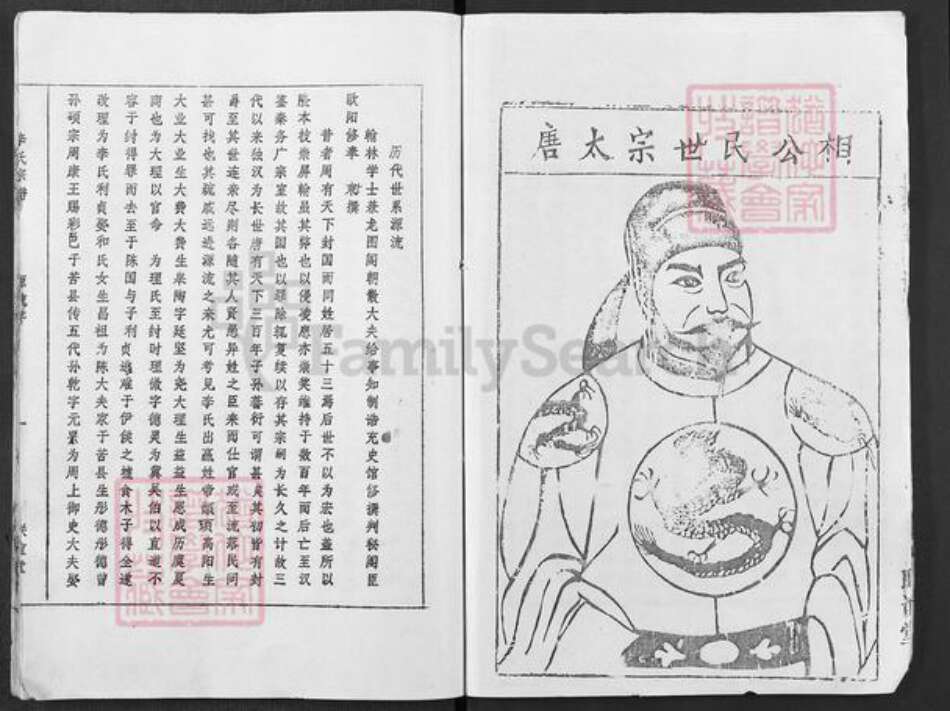 唐太宗世民公相
历代世系源流
翰林学士兼龙图阁朝散大夫给事知制诰充史馆修撰判秘阁臣
欧阳修奉 敕撰
昔者周有天下封国而同姓居五十三焉后世不以为宏也盖所以
代以来独汉为长世唐有天下三百年子孙蕃衍可谓甚矣其初皆有封
爵至其世远亲尽则各随其人贤愚异姓之臣来而仕官或至流落民间
甚可找也其疏戚远近源流之来尤可考见李氏出嬴姓帝颛顼高阳生
大业大业生大费大费生皋陶字延坚为尧大理生益益生恩成历虞夏
商也为大理以官命 为理氏至纣时理徵字德灵为翼吴伯以直道不
容于纣得罪而去至于陈国与子利贞逃难于伊侯之墟食木子得全遂
改理为李氏利贞娶和氏女生昌祖为陈大夫家于苦县生彤德彤德曾
孙硕宗周康王赐彩邑于苦县传五代孙乾字元果为周上御史大夫娶
李氏宗谱
FamilySearch